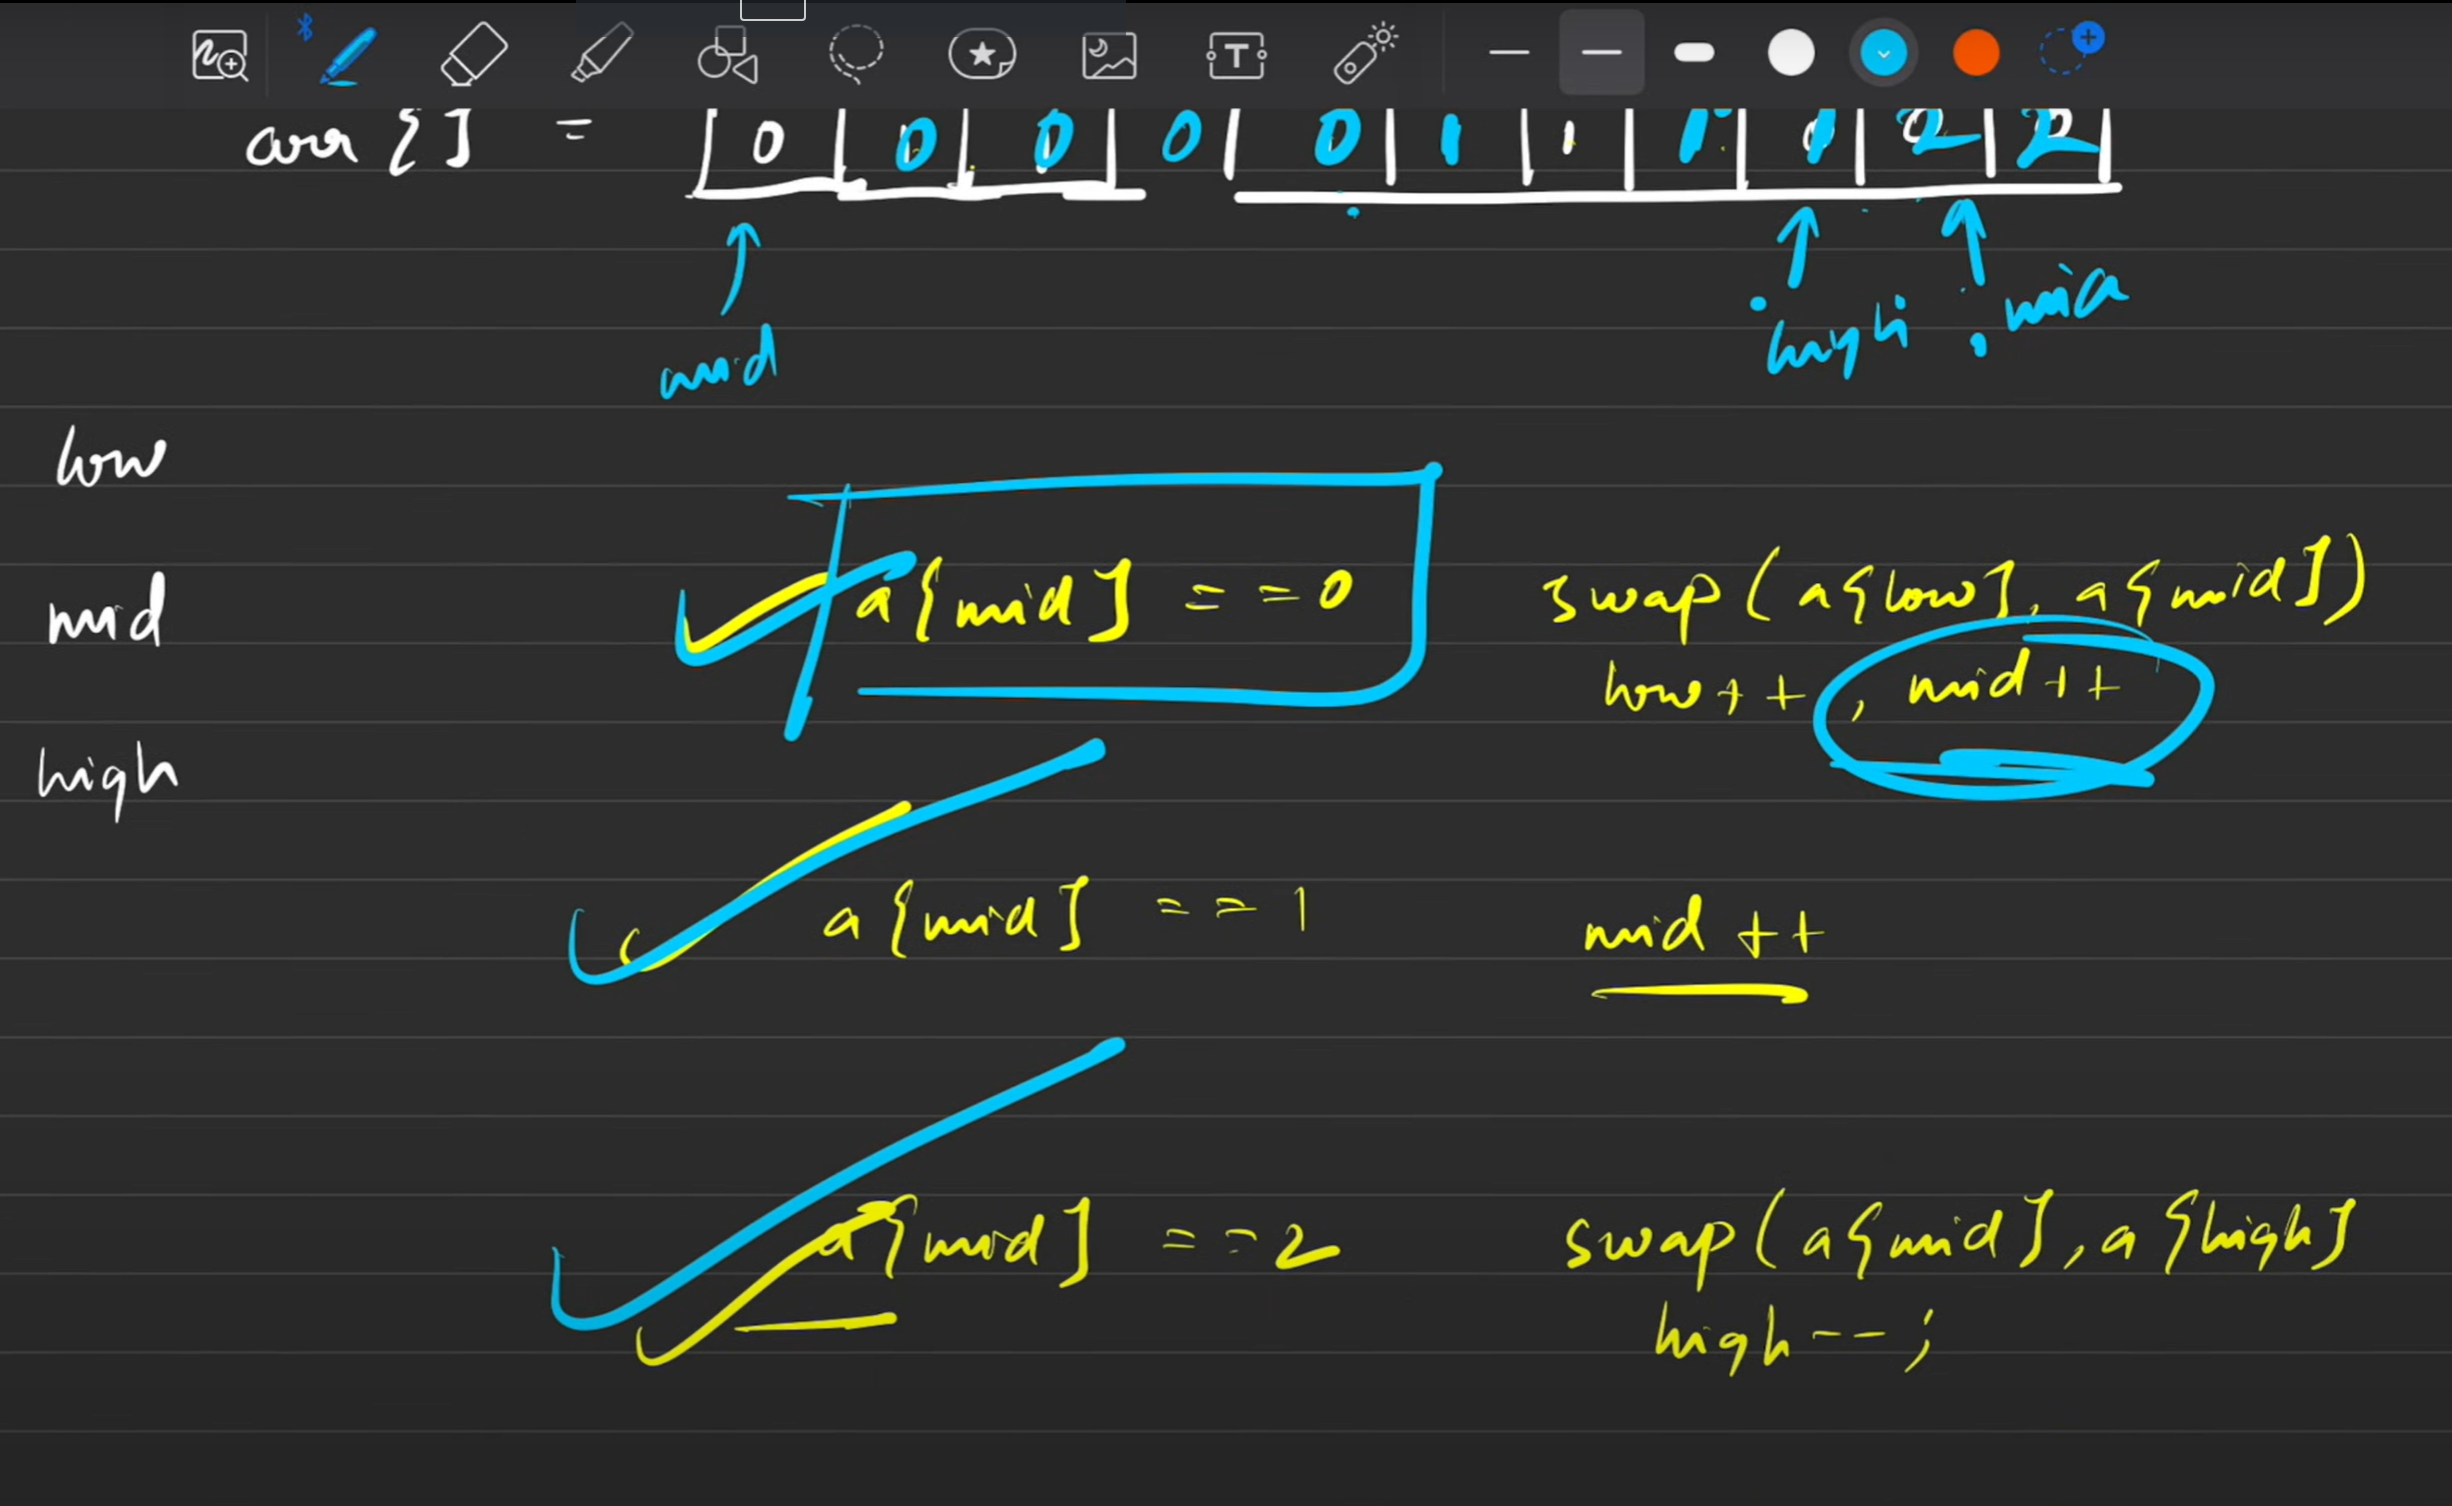 arr [] = 0 0 0 0 0 1 1 1 1 2 2
mid high mid
low
a[mid] == 0 swap(a[low], a[mid])
mid low++, mid++
high
a[mid] == 1 mid ++
a[mid] == 2 swap(a[mid], a[high]
high--;